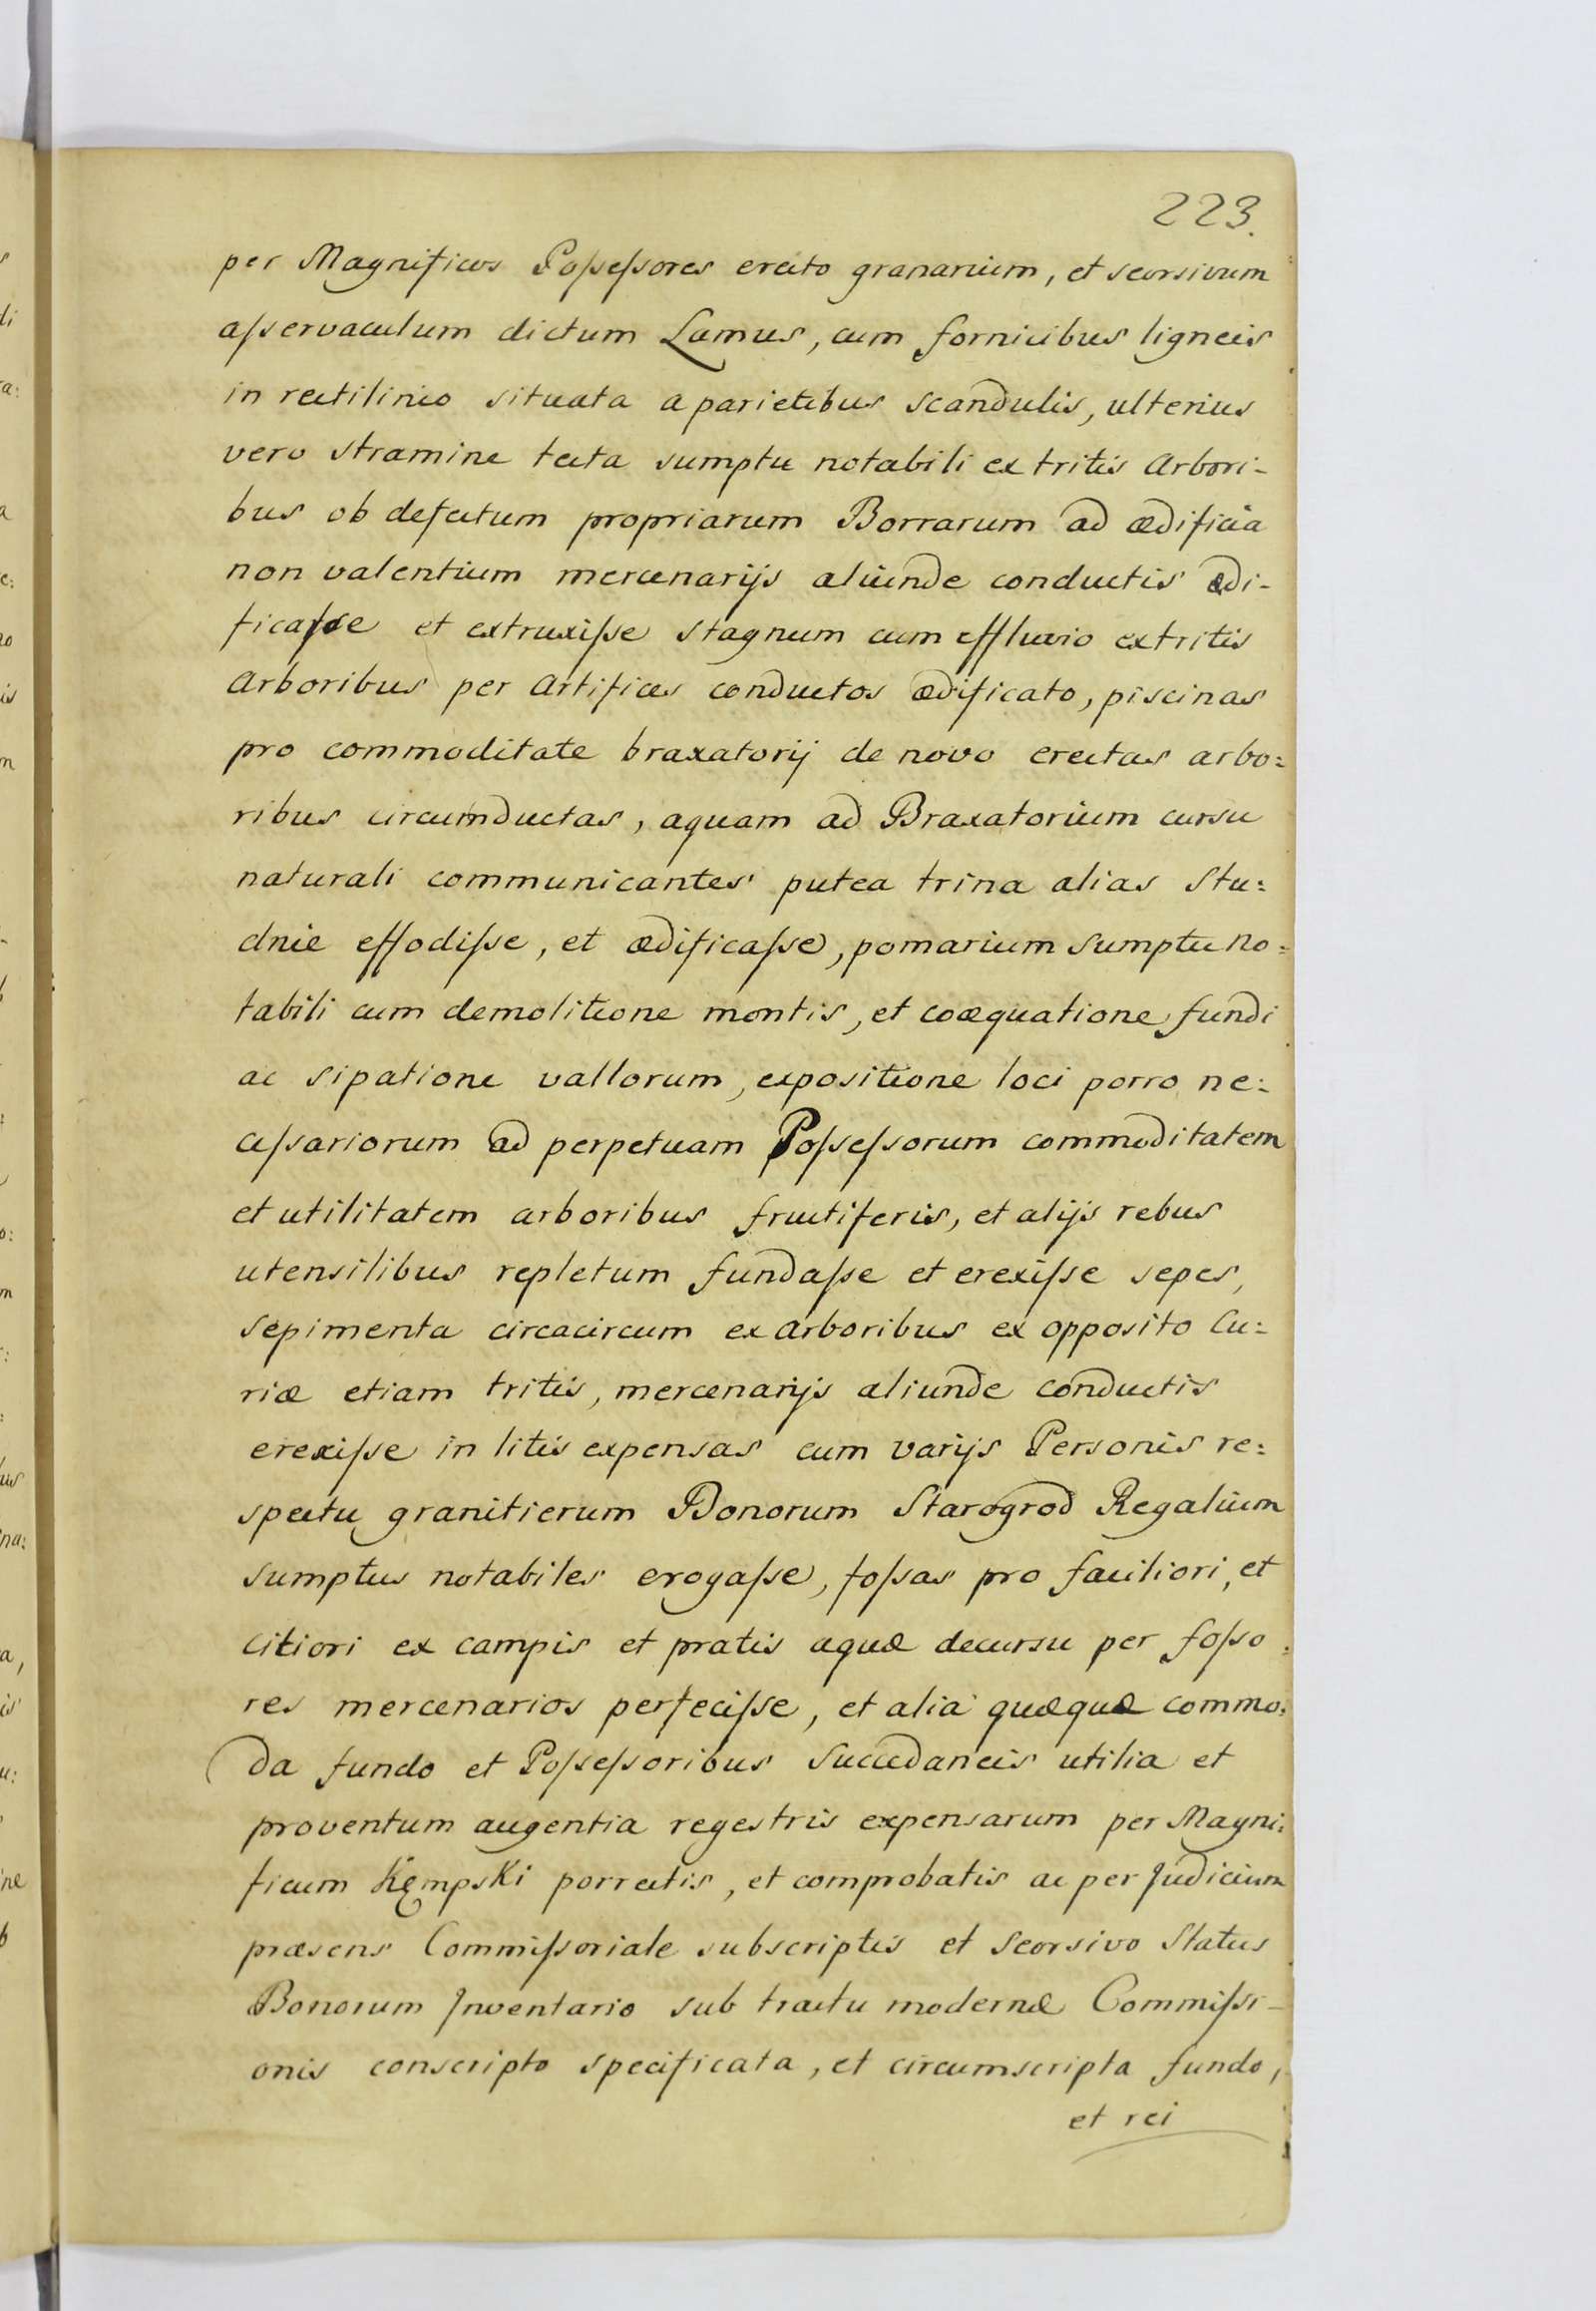 223.
per Magnificos Poſseſsores erecto granarium, et seorsivum
aſservaculum dictum Lamus, cum fornicibus ligneis
in rectilineo situata a parietibus scandulis, ulterius
vero stramine tecta sumptu notabili ex tritis Arbori-
bus ob defectum propriarum Borrarum ad ædificia
non valentium mercenarijs aliunde conductis ædi-
ficaſse et extruxiſse stagnum cum effluvio ex tritis
Arboribus per Artifices conductos ædificato, piscinas
pro commoditate braxatorij de novo erectas arbo:
ribus circumductas, aquam ad Braxatorium cursu
naturali communicantes putea trina alias Stu:
dnie effodiſse, et ædificaſse, pomarium sumptu no:
tabili cum demolitione montis, et coæquatione fundi
ac sipatione vallorum, expositione loci porro ne:
ceſsariorum ad perpetuam Poſseſsorum commoditatem
et utilitatem arboribus fructiferis, et alijs rebus
utensilibus repletum fundaſse et erexiſse sepes,
sepimenta circacircum ex arboribus ex opposito Cu:
riæ etiam tritis, mercenarijs aliunde conductis
erexiſse in litis expensas cum varijs Personis re:
spectu granitierum Bonorum Starogrod Regalium
sumptus notabiles erogaſse, foſsas pro faciliori, et
citiori ex campis et pratis aquæ decursu per foſso:
res mercenarios perfeciſse, et alia quæquæ commo:
da fundo et Poſseſsoribus succedaneis utilia et
proventum augentia regestris expensarum per Magni:
ficum Kęmpski porrectis, et comprobatis ac per Judicium
præsens Commiſsoriale subscriptis et seorsivo Status
Bonorum Inventario sub tractu modernæ Commiſsi-
onis conscripto specificata, et circumscripta fundo,
et rei